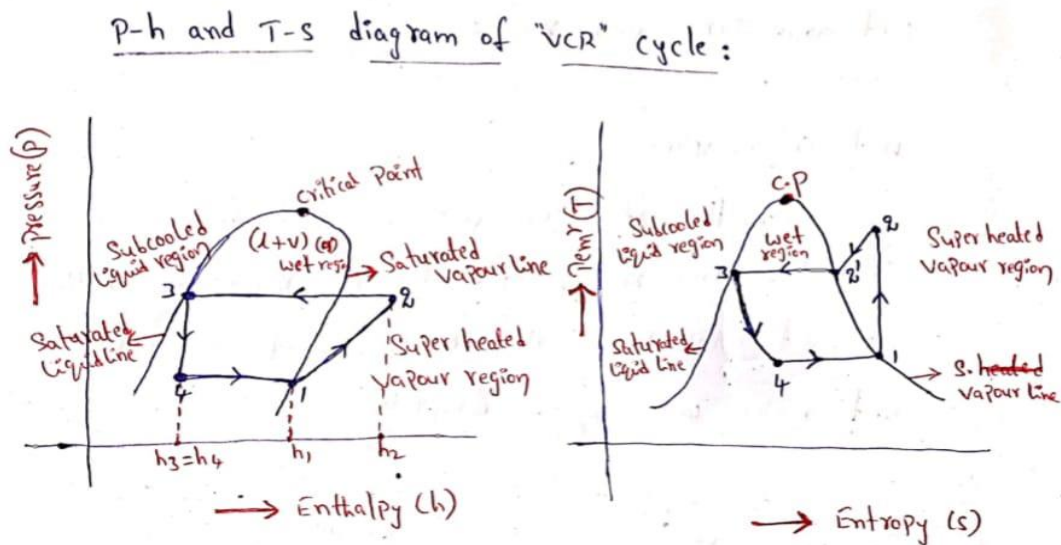 P-h and T-S diagram of "VCR" cycle:
Pressure(P)
Critical Point
Subcooled
liquid region
(l+v) (or)
wet regi
Saturated
vapour line
3
2
Saturated
liquid line
Super heated
vapour region
4
1
h3=h4
h1
h2
Enthalpy (h)
Temr(T)
C.P
Subcooled
liquid region
wet
region
2
Super heated
vapour region
3
2'
Saturated
liquid line
4
1
S.
vapour line
Entropy (s)